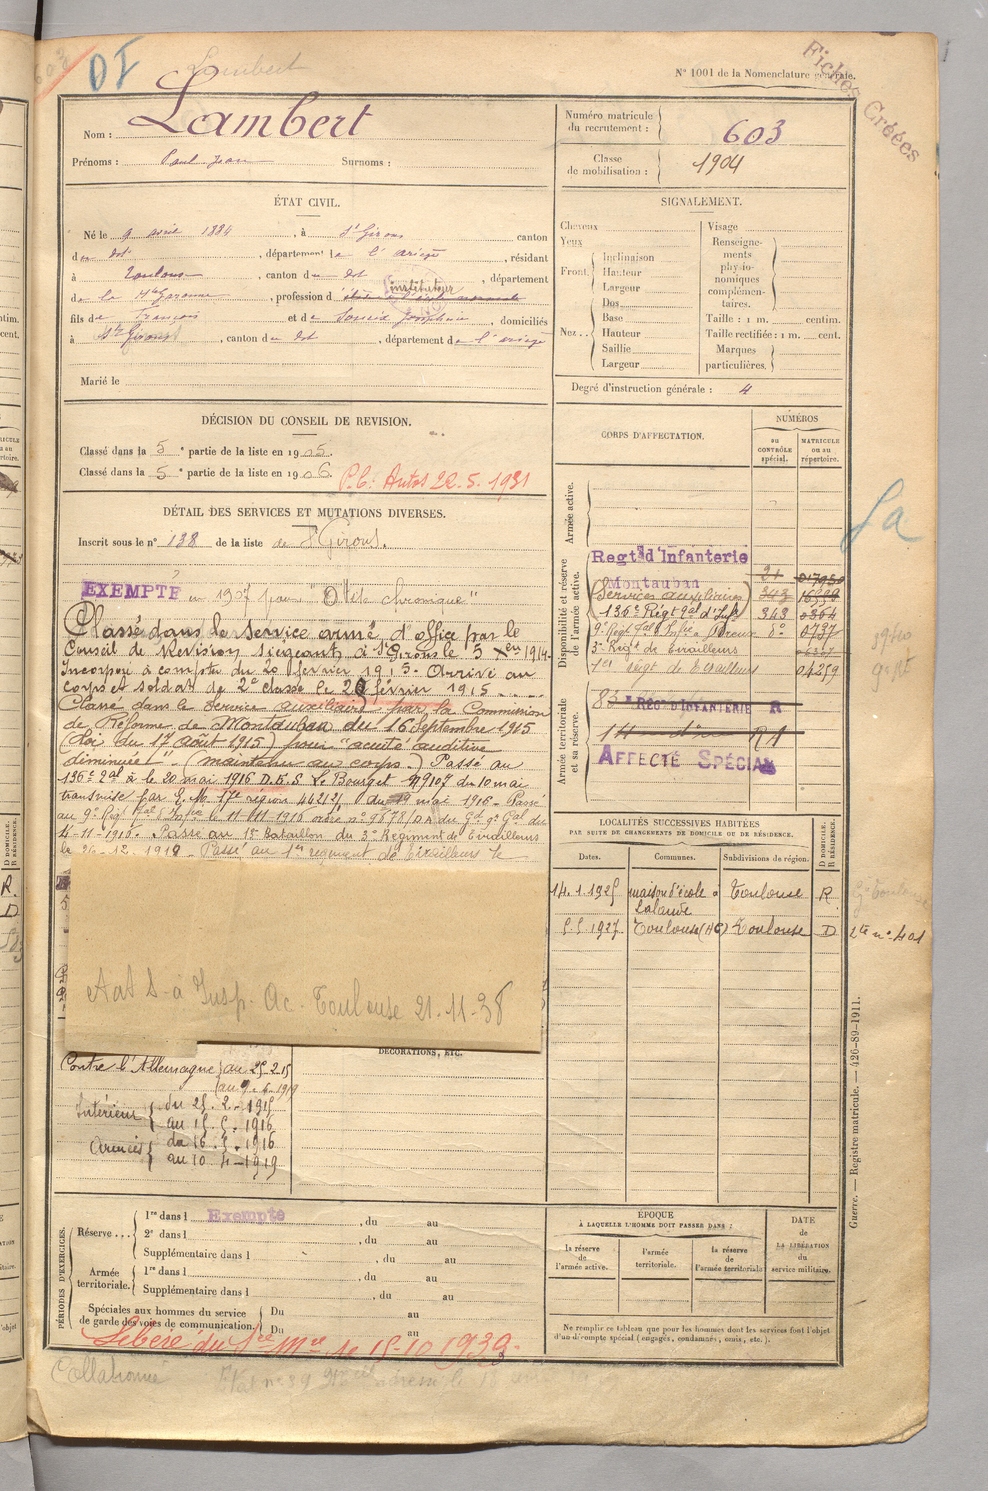 603
DI
Lambert
Fiches Créées
N° 1001 de la Nomenclature générale.
Nom : Lambert
Prénoms : Paul Jean Surnoms :
Numéro matricule du recrutement : 603
Classe de mobilisation : 1904
ÉTAT CIVIL.
Né le 9 avril 1884, à St Girons canton
du dot, département de l'ariège, résidant
à Toulouse, canton du dot, département
de la Hte Garonne, profession d'élève à l'école normale instituteur
fils de François et de Soucix Joséphine, domiciliés
à St Girons, canton du dot, département de l'ariège
Marié le
SIGNALEMENT.
Cheveux
Yeux
Front. Inclinaison
Hauteur
Largeur
Nez... Dos
Base
Hauteur
Saillie
Largeur
Visage
Renseignements physionomiques complémentaires.
Taille : 1 m. centim.
Taille rectifiée : 1 m. cent.
Marques particulières.
Degré d'instruction générale : 4
DÉCISION DU CONSEIL DE REVISION.
Classé dans la 5e partie de la liste en 1905.
Classé dans la 5e partie de la liste en 1906.
P.C. Autos 22.5.1931
DÉTAIL DES SERVICES ET MUTATIONS DIVERSES.
Inscrit sous le n° 138 de la liste de St Girons.
EXEMPTÉ en 1907 pour "Otite chronique"
Classé dans le service armé, d'office par le
Conseil de Revision siegeant à St Girons le 5 Xbre 1914.
Incorporé à compter du 20 février 1915. Arrivé au
corps et soldat de 2e classe le 20 février 1915
Classé dans le service auxiliaire par la Commission
de Réforme de Montauban du 16 Septembre 1915
(Loi du 17 août 1915) pour "acuité auditive
diminuée" (maintenu au corps.) Passé au
136e Ral à le 20 mai 1916 D.E.S Le Bourget n° 9107 du 10 mai
transmise par E.M. 17e région du 19 mai 1916 - Passé
au 9e Rég
4-11-1916. Passé au 1er Bataillon du 3e Régiment de Tirailleurs
le 26-12-1918 - Passé au 1er régiment de Tirailleurs le
Aat S- à Insp. Ac. Toulouse 21-11-38
CORPS D'AFFECTATION.
NUMÉROS
au CONTRÔLE spécial.
MATRICULE ou au répertoire.
Armée active.
Disponibilité et réserve de l'armée active.
Regt d'Infanterie
Montauban
(Services auxiliaires) 343
136e Régt gal d'Infie 343 0364
8e 0737
3e Régt de Tirailleurs
1er régt de Tirailleurs 04259
Armée territoriale et sa réserve.
83e RÉGt D'INFANTERIE R
AFFECTÉ SPÉCIAL
Sa
LOCALITÉS SUCCESSIVES HABITÉES
PAR SUITE DE CHANGEMENTS DE DOMICILE OU DE RÉSIDENCE.
Dates. Communes. Subdivisions de région. D DOMICILE. R RÉSIDENCE.
14.1.1925 maison d'école à Lalande Toulouse R
5.5.1927 Toulouse (HG) Toulouse D
DÉCORATIONS, ETC.
Contre l'Allemagne au 25.2.15
au 9.4.1919
Intérieur du 25.2.1915
au 15.5.1916
Armées du 16.5.1916
au 10.4.1919
PÉRIODES D'EXERCICES.
Réserve... 1re dans l Exempté, du au
2e dans l , du au
Supplémentaire dans l , du au
Armée territoriale. 1re dans l , du au
Supplémentaire dans l , du au
Spéciales aux hommes du service de garde des voies de communication. Du au
Du au
Libéré du Sce Mre le 15-10-1933.
ÉPOQUE
À LAQUELLE L'HOMME DOIT PASSER DANS :
la réserve de l'armée active.
l'armée territoriale.
la réserve de l'armée territoriale
DATE de LA LIBÉRATION du service militaire.
Ne remplir ce tableau que pour les hommes dont les services font l'objet
d'un décompte spécial (engagés, condamnés, omis, etc.).
Guerre. — Registre matricule. — 426-89-1911.
Collationné